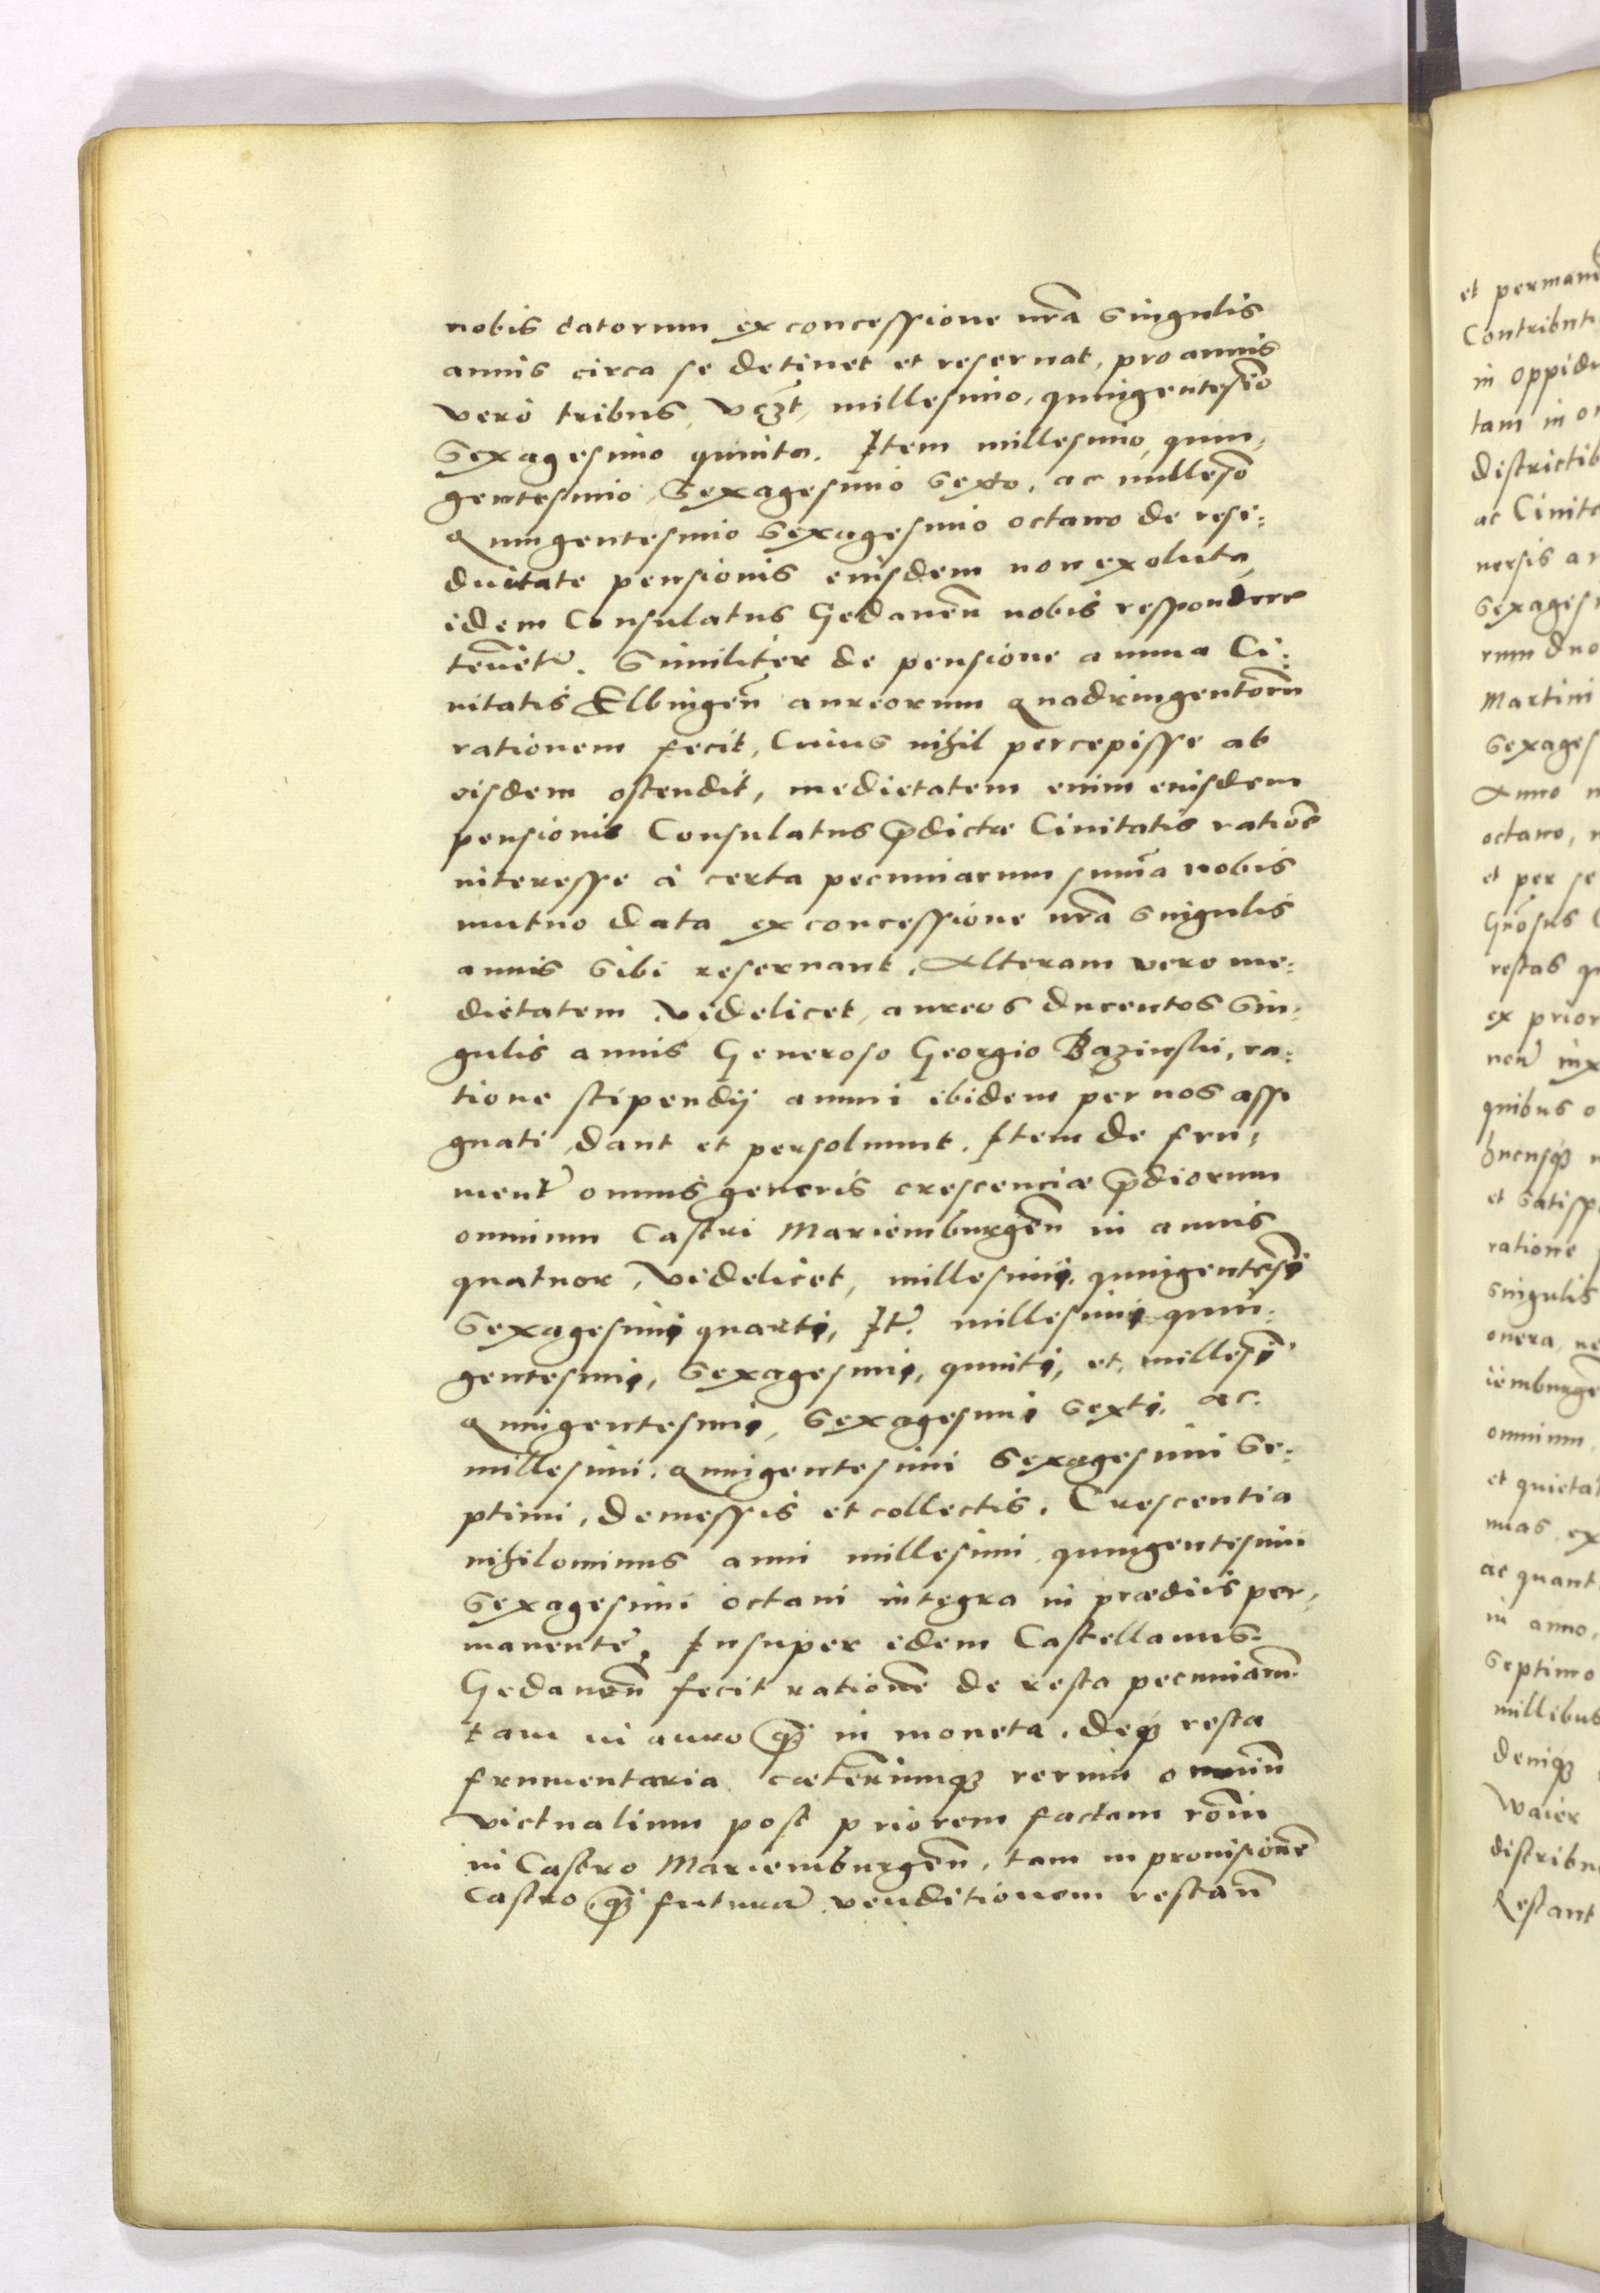 nobis datorum ex concessione nr̃a singulis
annis circa se detinet et reseruat, pro annis
vero tribus, vcz̃t, millesimo, quingentesĩo
Sexagesimo quinto. Item millesimo, quin-
gentesimo, Sexagesimo sexto, ac millesõ
Quingentesimo Sexagesimo octauo de resi-
duitate pensionis eiusdem non exoluta,
idem Consulatus Gedaneñ nobis respondere
teñet᷑. Similiter de pensione annua Ci-
uitatis Elbingeñ aureorum Quadringentorũ
rationem fecit, Cuius nihil percepisse ab
eisdem ostendit, medietatem enim eiusdem
pensionis Consulatus p̃dictæ Ciuitatis rationẽ
interesse à certa pecuniarum sum̃a nobis
mutuo data ex concessione nr̃a singulis
annis sibi reseruant. Alteram vero me-
dietatem videlicet, aureos ducentos sin-
gulis annis Generoso Georgio Bazinski, ra-
tione stipendij annui ibidem per nos assi
gnati, dant et persoluunt. Item de fru-
ment᷑ omnis generis crescenciæ p̃diorum
omnium Castri Mariemburgeñ in annis
quatuor, videlicet, millesimi, quingentesĩ
Sexagesimi quarti, It᷑. millesimi quin-
gentesimi, Sexagesimi, quinti, et, millesĩ
Quingentesimi, Sexagesimi sexti. ac.
millesimi. Quingentesimi Sexagesimi se-
ptimi, demessis et collectis. Crescentia
nihilominus anni millesimi quingentesimi
Sexagesimi octaui integra in prædiis per-
manente. Insuper idem Castellanus.
Gedaneñ fecit rationẽ de resta pecuniarũ
tam in auro q̃ȝ in moneta. deqȝ resta
frumentaria cæterarumqȝ rerum omniũ
victualium post priorem factam rõm
in Castro Mariemburgeñ, tam in prouisionẽ
Castro, q̃ȝ futurã venditionem restañ
et permanẽ
Contributi
in oppidu
tam in
districtib
ac Ciuita
uersis
Sexages
rum duo
Martini
Sexages
Anno
octauo,
et per se
Gñosus
restas
ex prior
quibus
et satisf
ratione
singulis
onera,
iemburgẽ
omnium.
et quieta
mas ex
ac quant
in anno,
Septimo
millibus
Deniqȝ
Waier
distribu
Restant